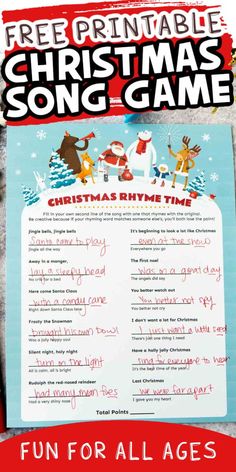 FREE PRINTABLE
CHRISTMAS
SONG GAME
CHRISTMAS RHYME TIME
Fill in your own second line of the song with one that rhymes with the original.
Be creative because if your rhyming word matches someone else's, you'll both lose the point!
Jingle bells, jingle bells
Santa came to play
Jingle all the way
Away in a manger,
lay a sleepy head
No crib for a bed
Here comes Santa Claus
with a candy cane
Right down Santa Claus lane
Frosty the Snowman
brought his own bowl
Was a jolly happy soul
Silent night, holy night
turn on the light
All is calm, all is bright
Rudolph the red-nosed reindeer
had many man fires
Had a very shiny nose
It's beginning to look a lot like Christmas
even at the snow
Everywhere you go
The first noel
Was on a great day
The angels did say
You better watch out
You better not spy
You better not cry
I don't want a lot for Christmas
I just want a little
There's just one thing I need
Have a holly jolly Christmas
sing for everyone to hear
It's the best time of the year
Last Christmas
we were far apart
I gave you my heart
Total Points
FUN FOR ALL AGES